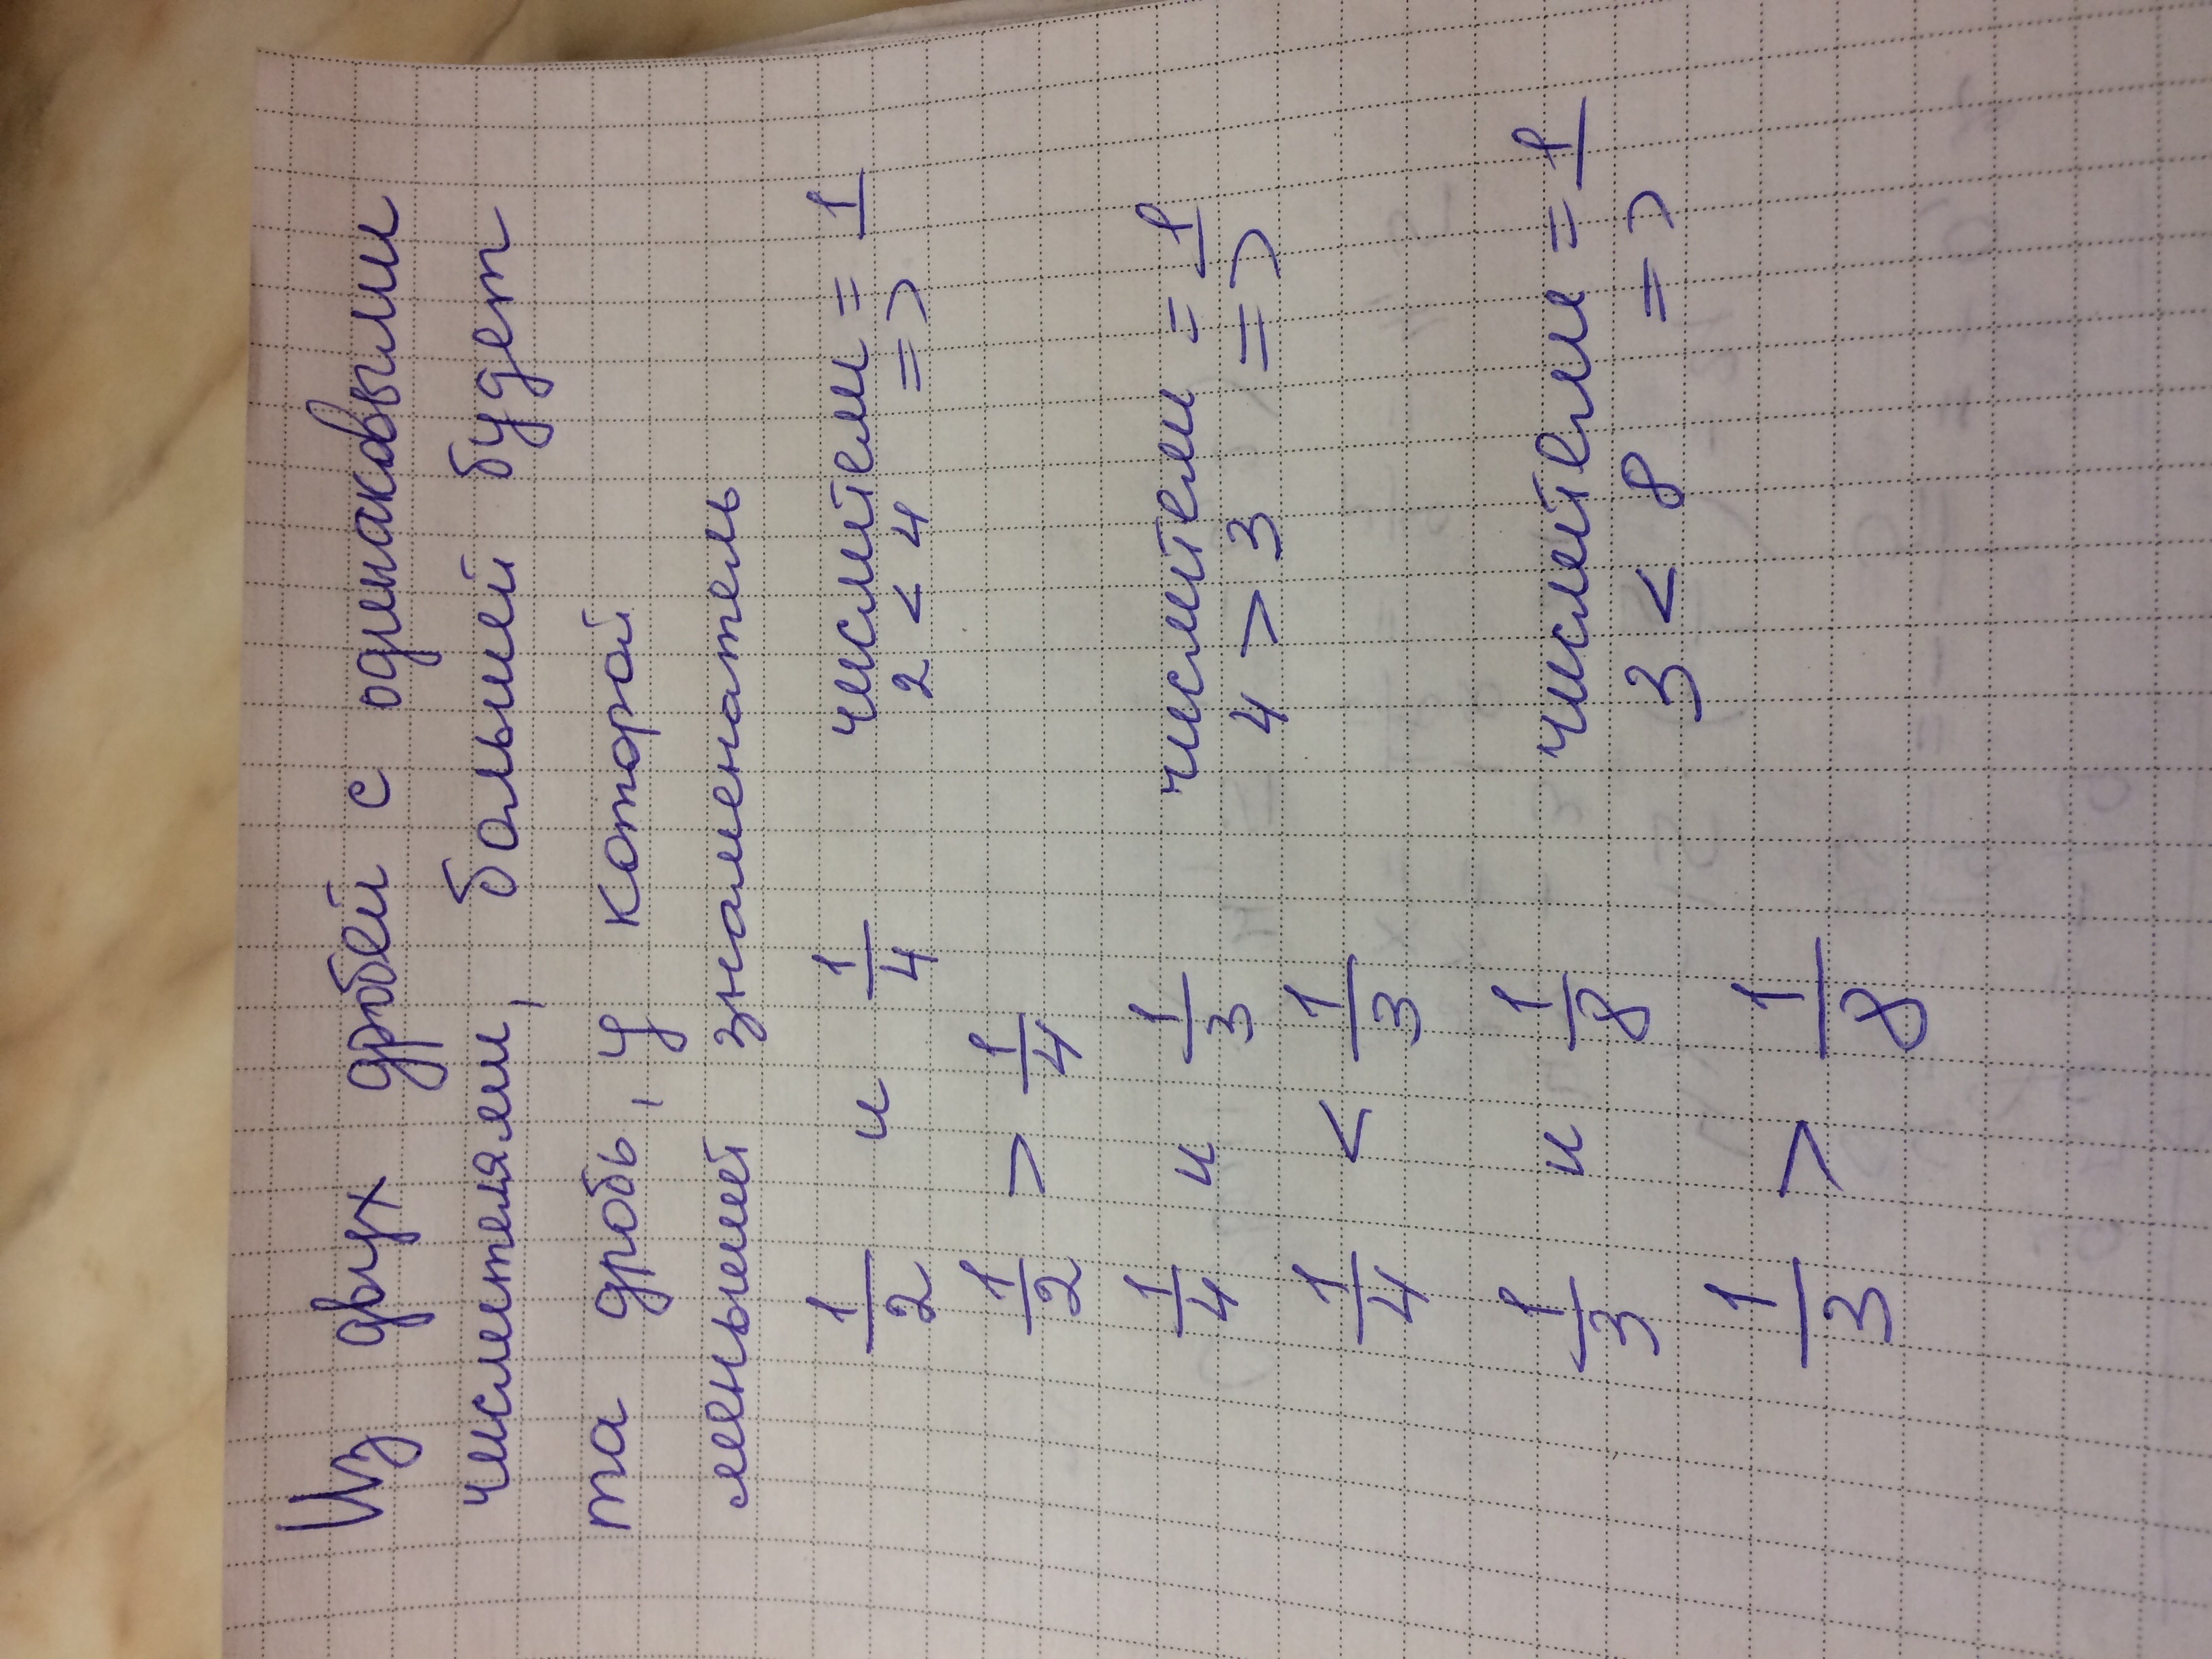 Из двух дробей с одинаковыми
числителями, большей будет
та дробь, у которой
меньший знаменатель
1/2 и 1/4 числител = 1
2 < 4 =>
1/2 > 1/4
1/4 и 1/3 числител = 1
4 > 3 =>
1/4 < 1/3
1/3 и 1/8 числител = 1
3 < 8 =>
1/3 > 1/8